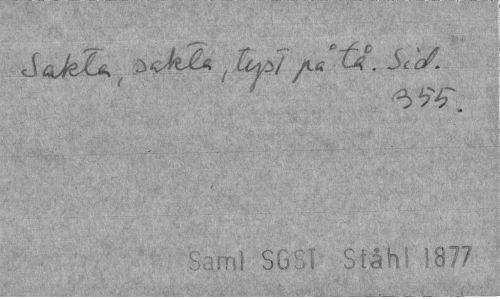 Sakta, sakta, tyst på tå. Sid.
355.
Saml SGST Ståhl 1877